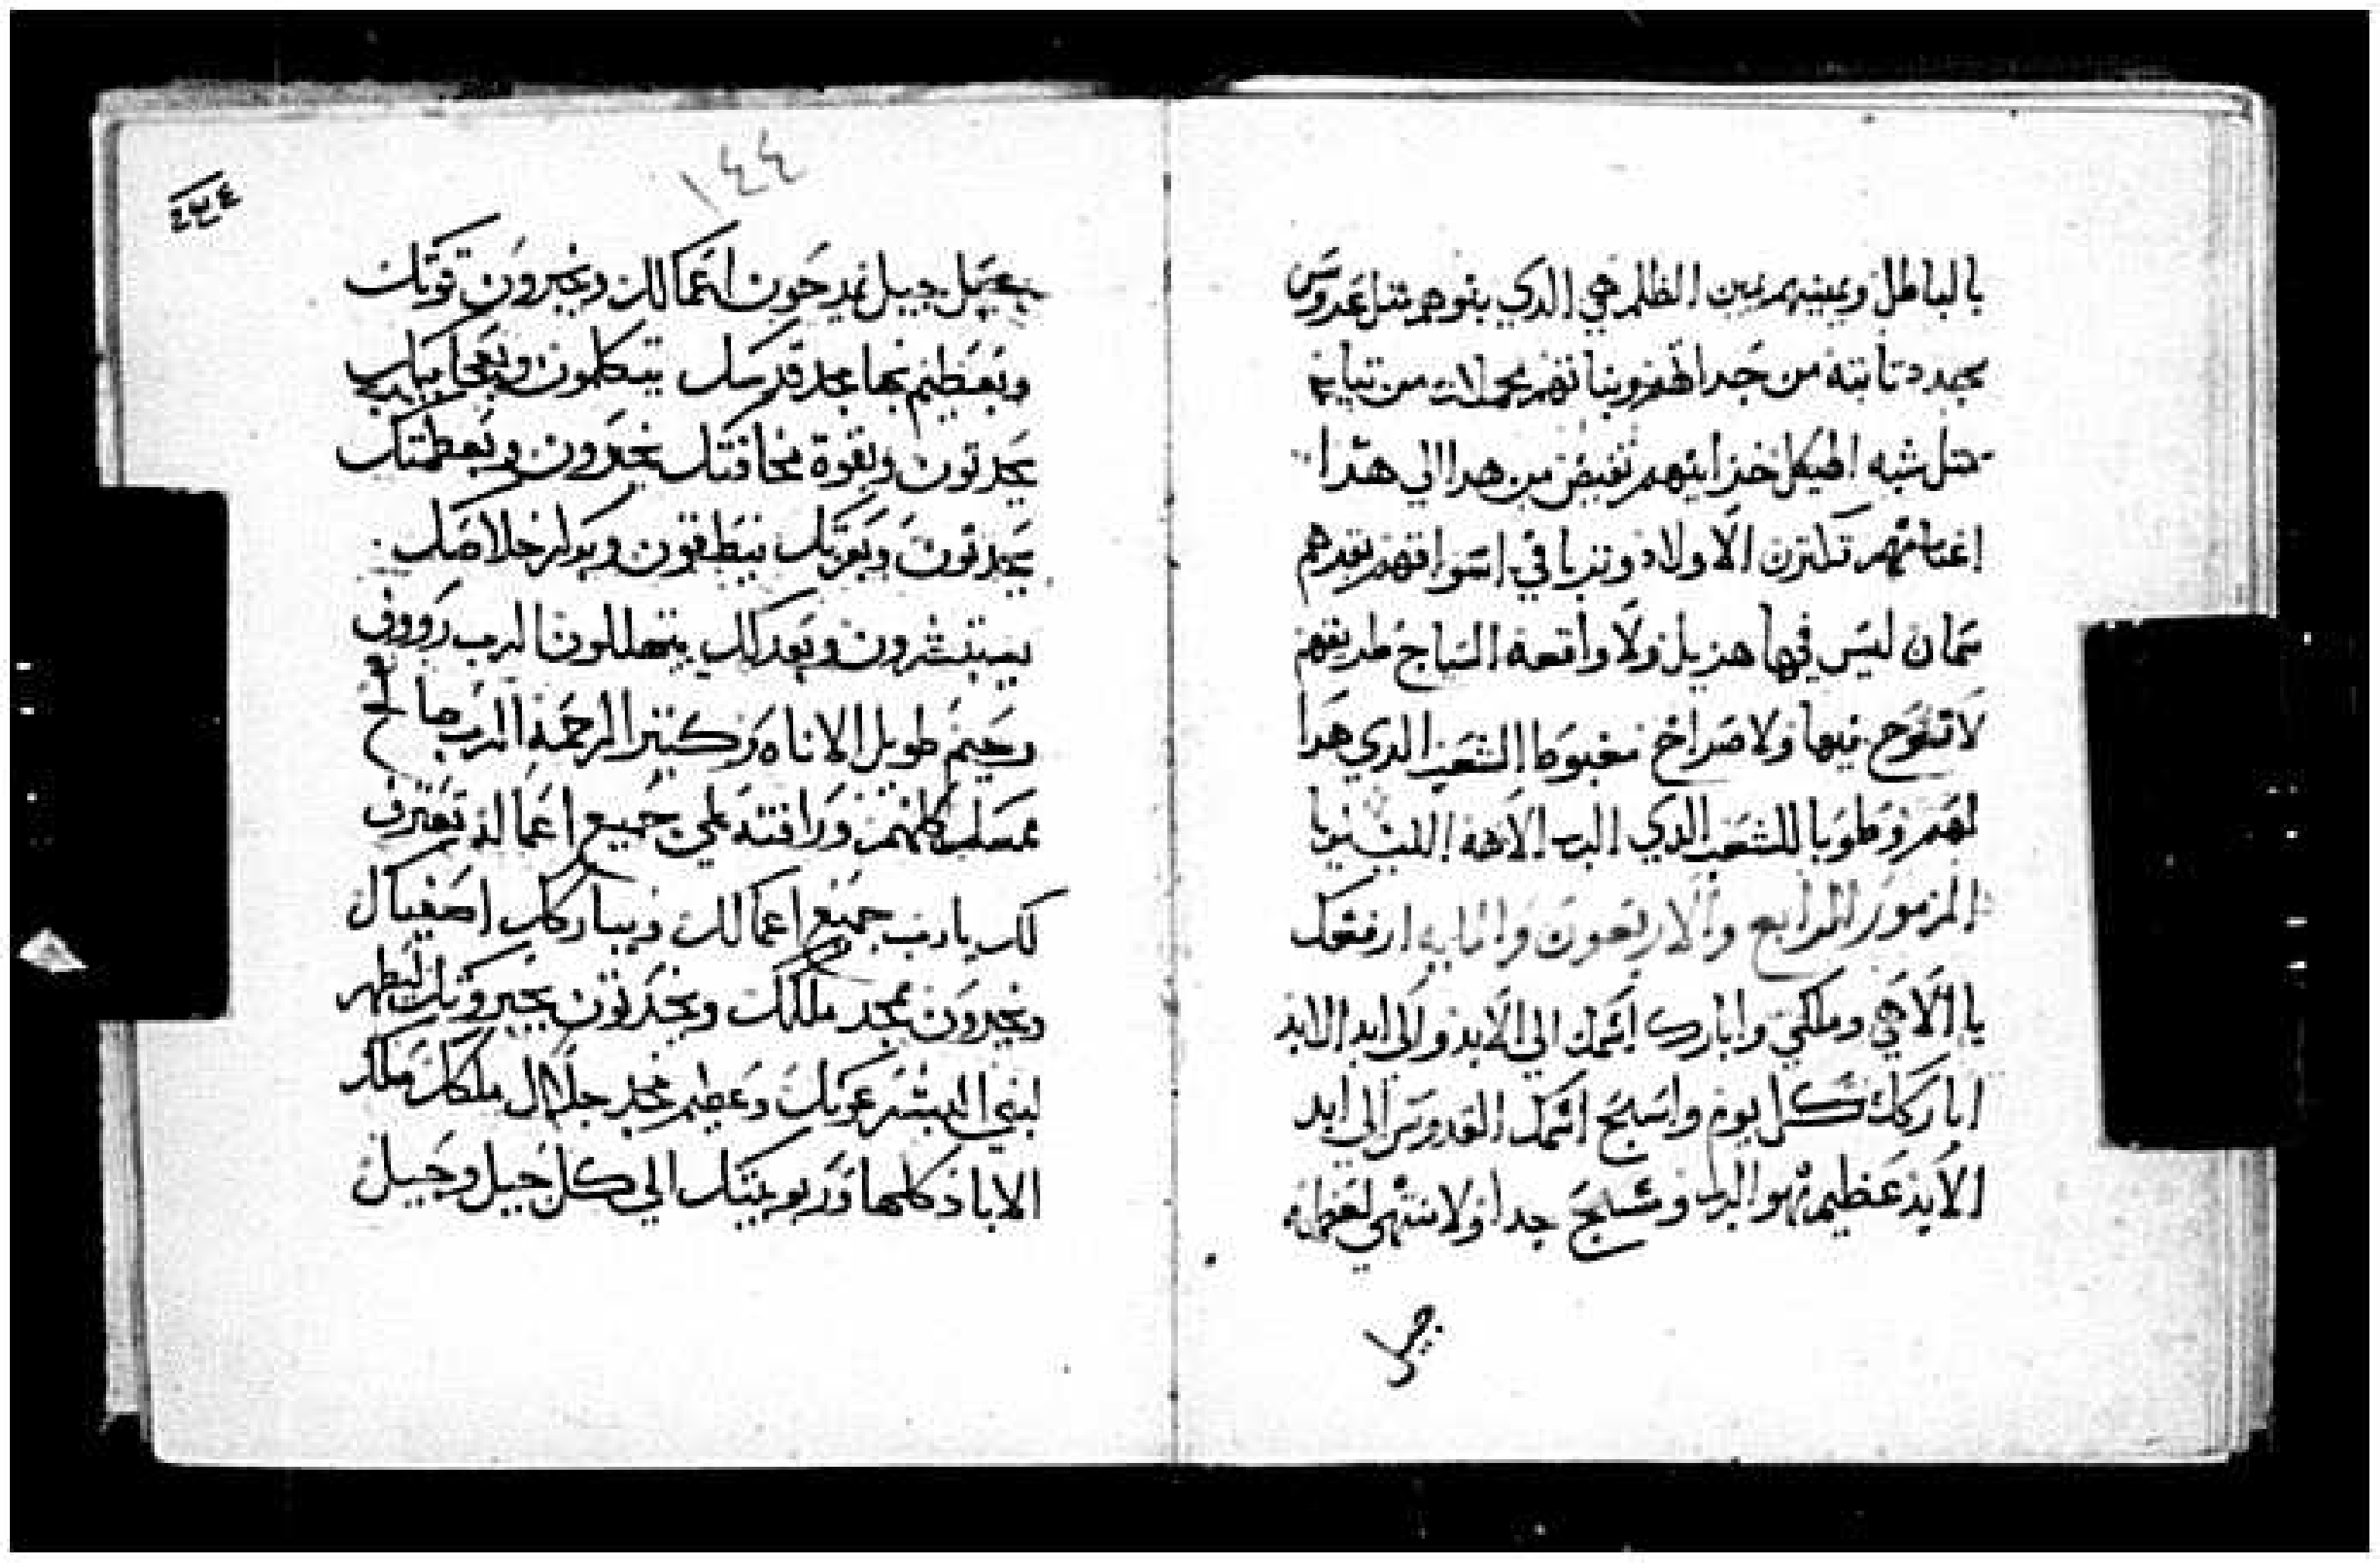 بالباطل ويمينهم يمين الظلم هي الدي بنوهم متل غدروس
جدد تابته من جدرانهم وبناتهم مجملات مزينات
متل شبه الهيكل خزاينهم تفيض من هدا الي هدا
اغنامهم تكترن الاولاد وتربا في اسواقهم بقرهم
سمان ليس فيها هزيل ولا واقعه السياج طريقهم
لا تنوح فيها ولا صراخ مغبوطا الشعب الدي هدا
لهم وطوبا للشعب الدي الرب الاهه الليتنويا
المزمور الرابع والاربعون والمايه ارفعك
يا الاهي وملكي وابارك اسمك الي الابد والي ابد الابد
اباركك كل يوم واسبح اسمك القدوس الي ابد
الابد عظيم هو الرب ومسبح جدا ولا منتهي لعظمته
جيل
١٤٤
جيل جيل يمدحون اعمالك ويخبرون قوتك
وبعظيم بها مجد قدسك يتكلمون وبعجايبك
يحدتون وبقوة مخافتك يخبرون وبعظمتك
يحدتون وبعزتك ينطقون وببرك وخلاصك
يستبشرون وبعدلك يتهللون الرب رووف
رحيم طويل الاناه وكتير الرحمة الرب صالح
ورافته علي جميع اعماله تعترف
لك يارب جميع اعمالك ويباركك اصفياك
ويخبرون بمجد ملكك ويحدتون بجبروتك لتظهر
لبني البشر عزتك وعظيم مجد جلال ملكك ملك
الاباد كلها وربوبيتك الي كل جيل وجيل